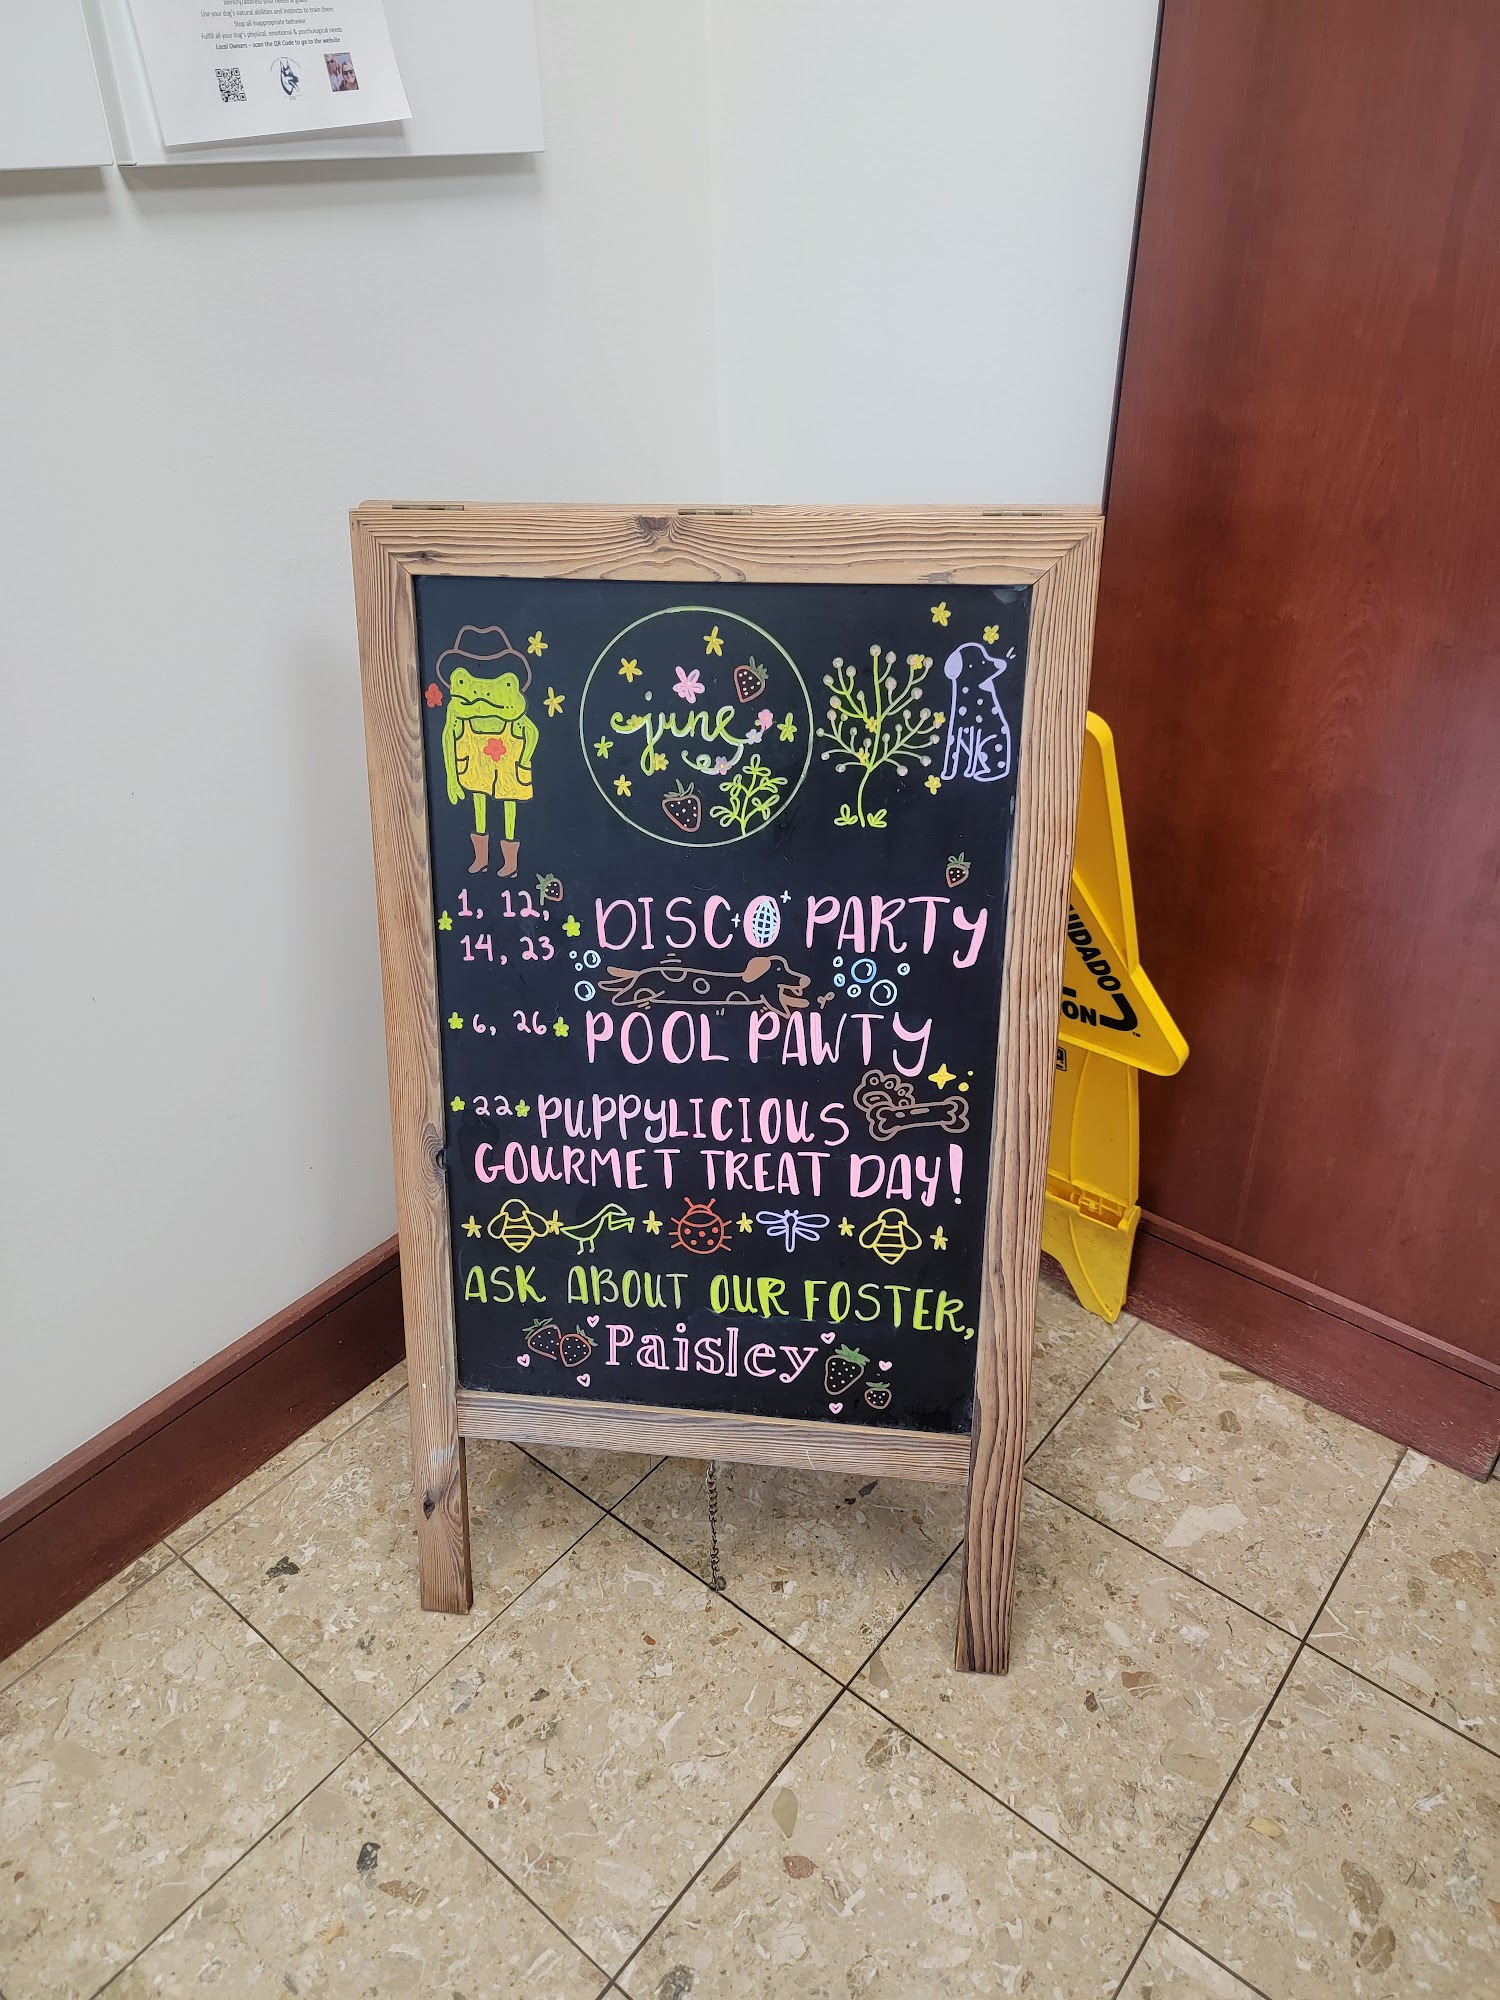 Identify/address your needs & goals
Use your dog's natural abilities and instincts to train them
Stop all inappropriate behavior
Fulfill all your dog's physical, emotional & psychological needs
Local Owners – scan the QR Code to go to the website
june
1, 12,
14, 23
DISCO PARTY
6, 26 POOL PAWTY
22 PUPPYLICIOUS
GOURMET TREAT DAY!
ASK ABOUT OUR FOSTER,
Paisley
UIDADO
ON